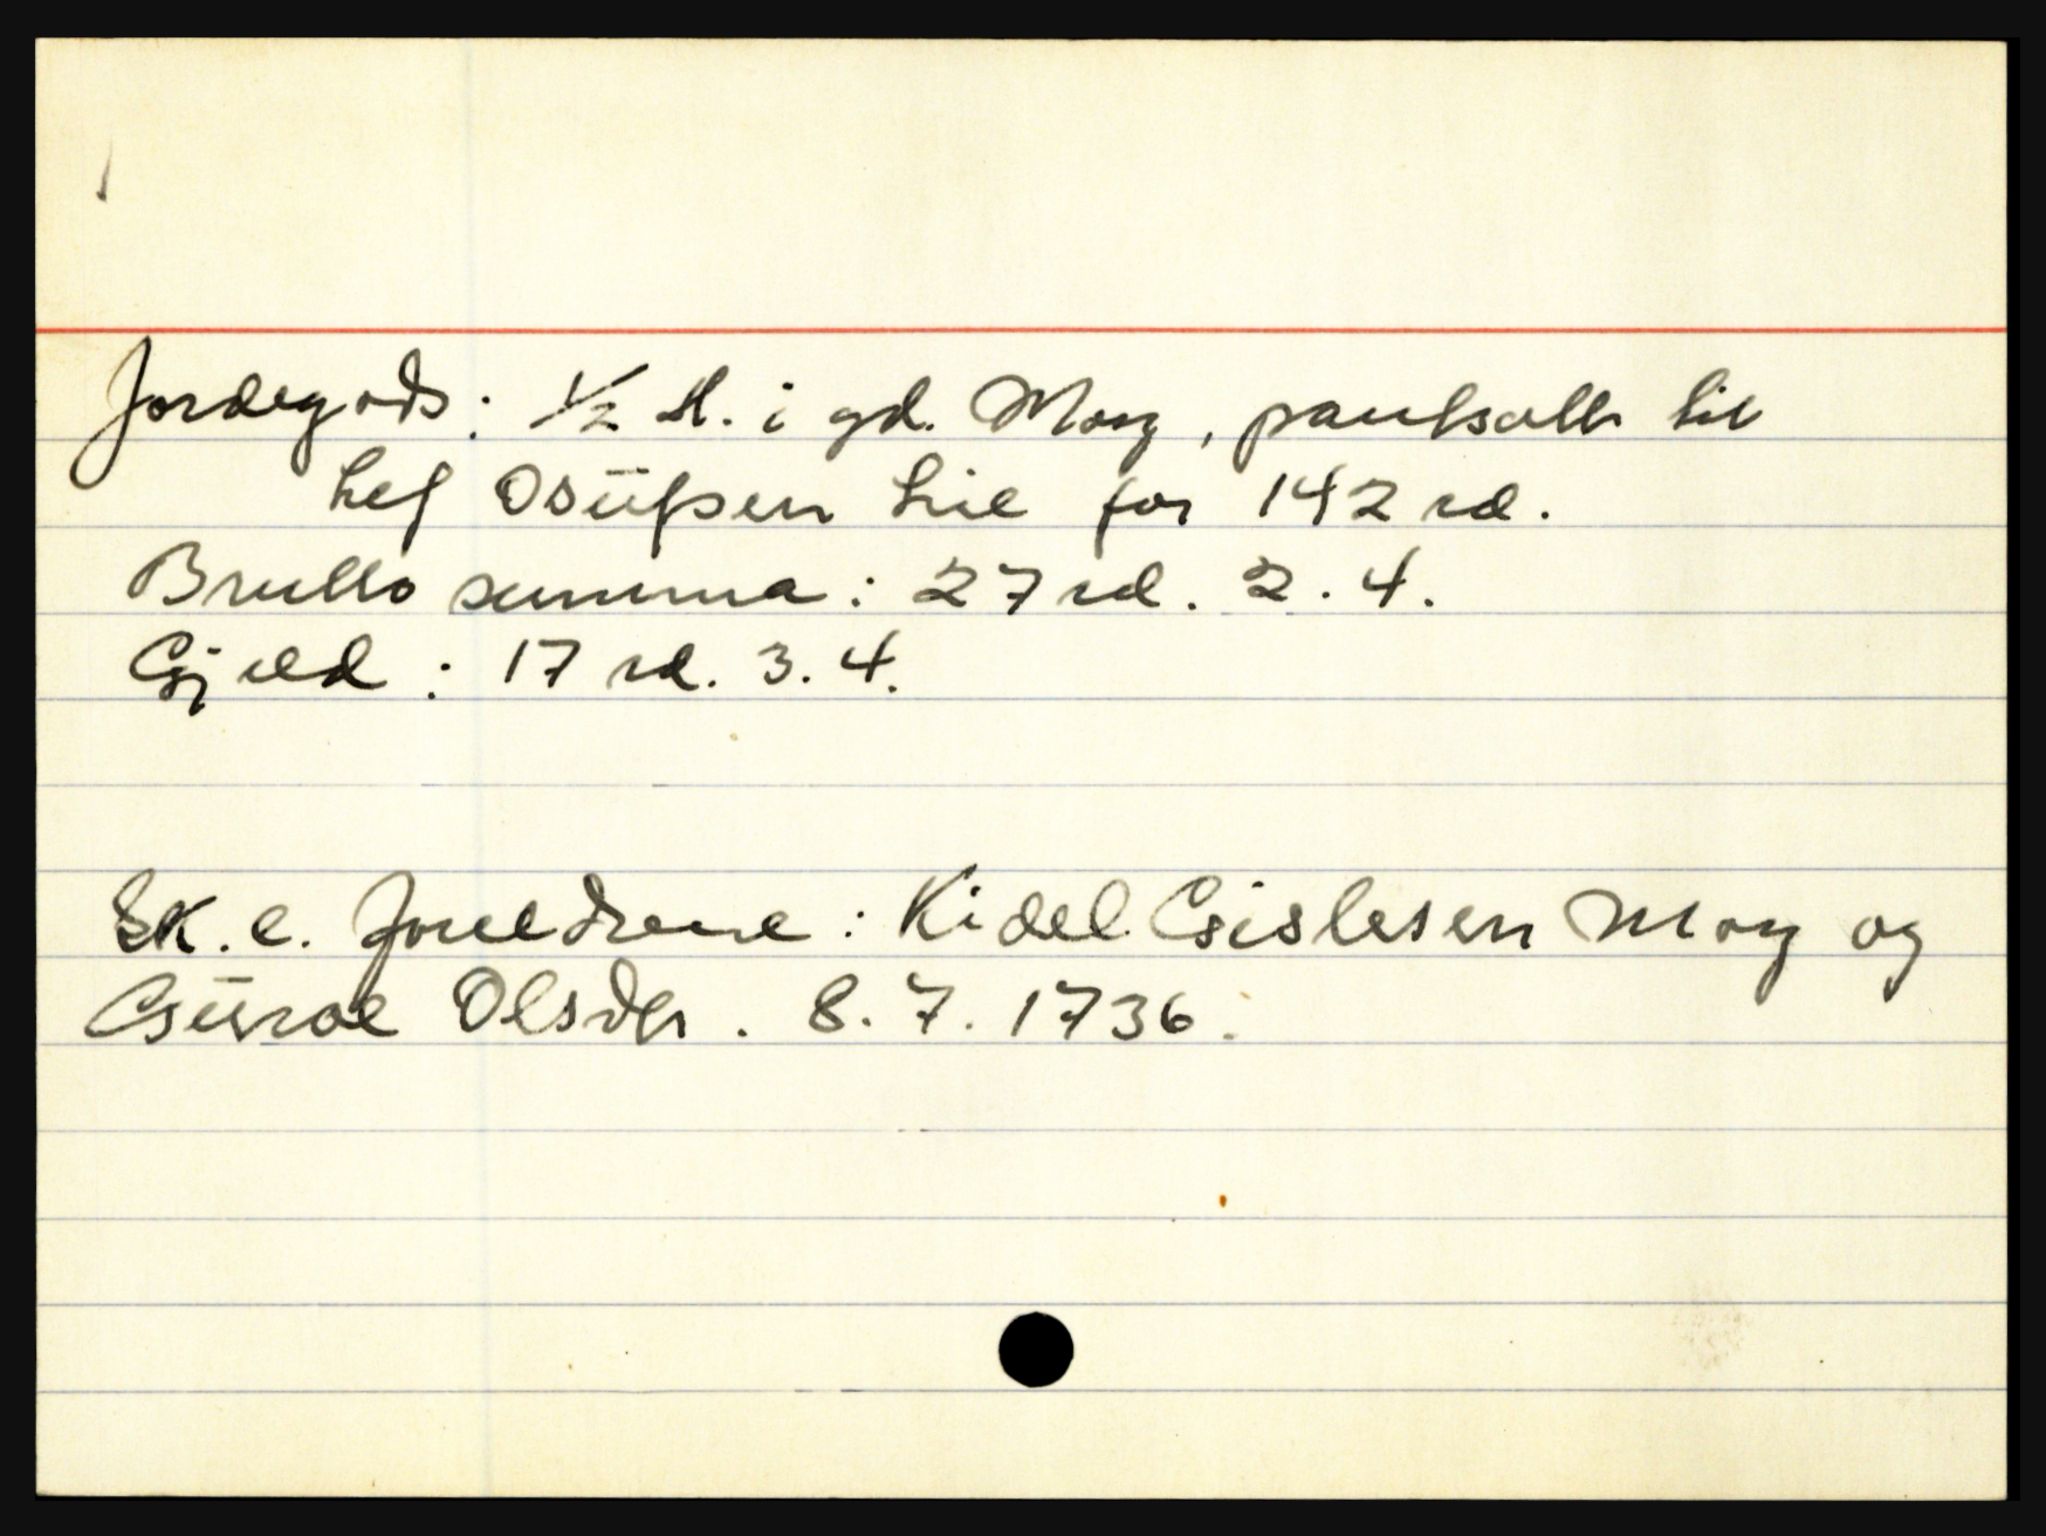 Jordegods: 1/2 H. i gd. Moy, pantsatt til
Lef Osüfsen Lie for 142 rd.
Brutto summa: 27 rd. 2. 4.
Gjeld: 17 rd. 3. 4.
Sk. e. foreldrene: Kidel Gislesen Moy og
Olsdtr. 8. 7. 1736.